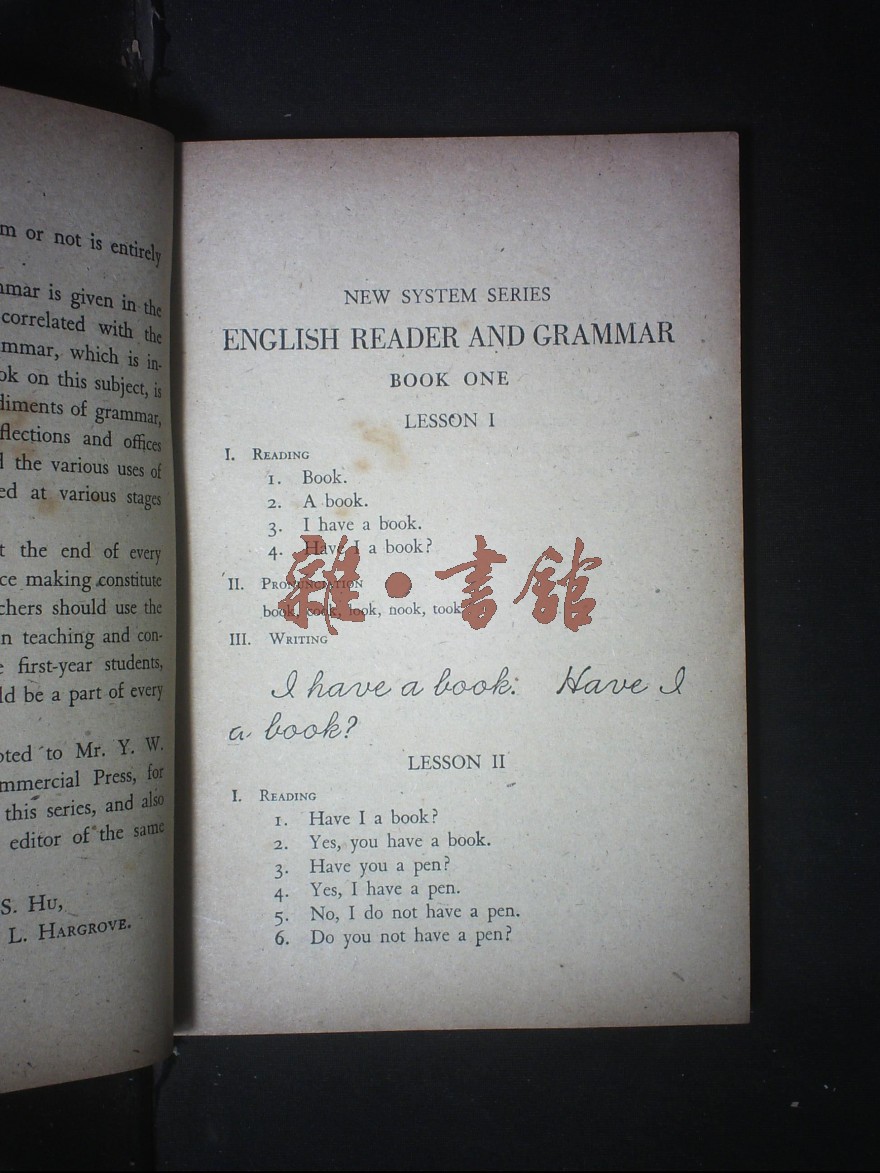 m or not is entirely
mmar is given in the
correlated with the
mmar, which is in-
ok on this subject, is
diments of grammar,
flections and offices
d the various uses of
ed at various stages
t the end of every
ce making constitute
chers should use the
n teaching and con-
e first-year students,
ld be a part of every
oted to Mr. Y. W.
mmercial Press, for
this series, and also
editor of the same
S. Hu,
L. Hargrove.
NEW SYSTEM SERIES
ENGLISH READER AND GRAMMAR
BOOK ONE
LESSON I
I. Reading
1. Book.
2. A book.
3. I have a book.
4. Have I a book?
II. Pronunciation
book, cook, look, nook, took
III. Writing
I have a book. Have I
a book?
雜·書館
LESSON II
I. Reading
1. Have I a book?
2. Yes, you have a book.
3. Have you a pen?
4. Yes, I have a pen.
5. No, I do not have a pen.
6. Do you not have a pen?